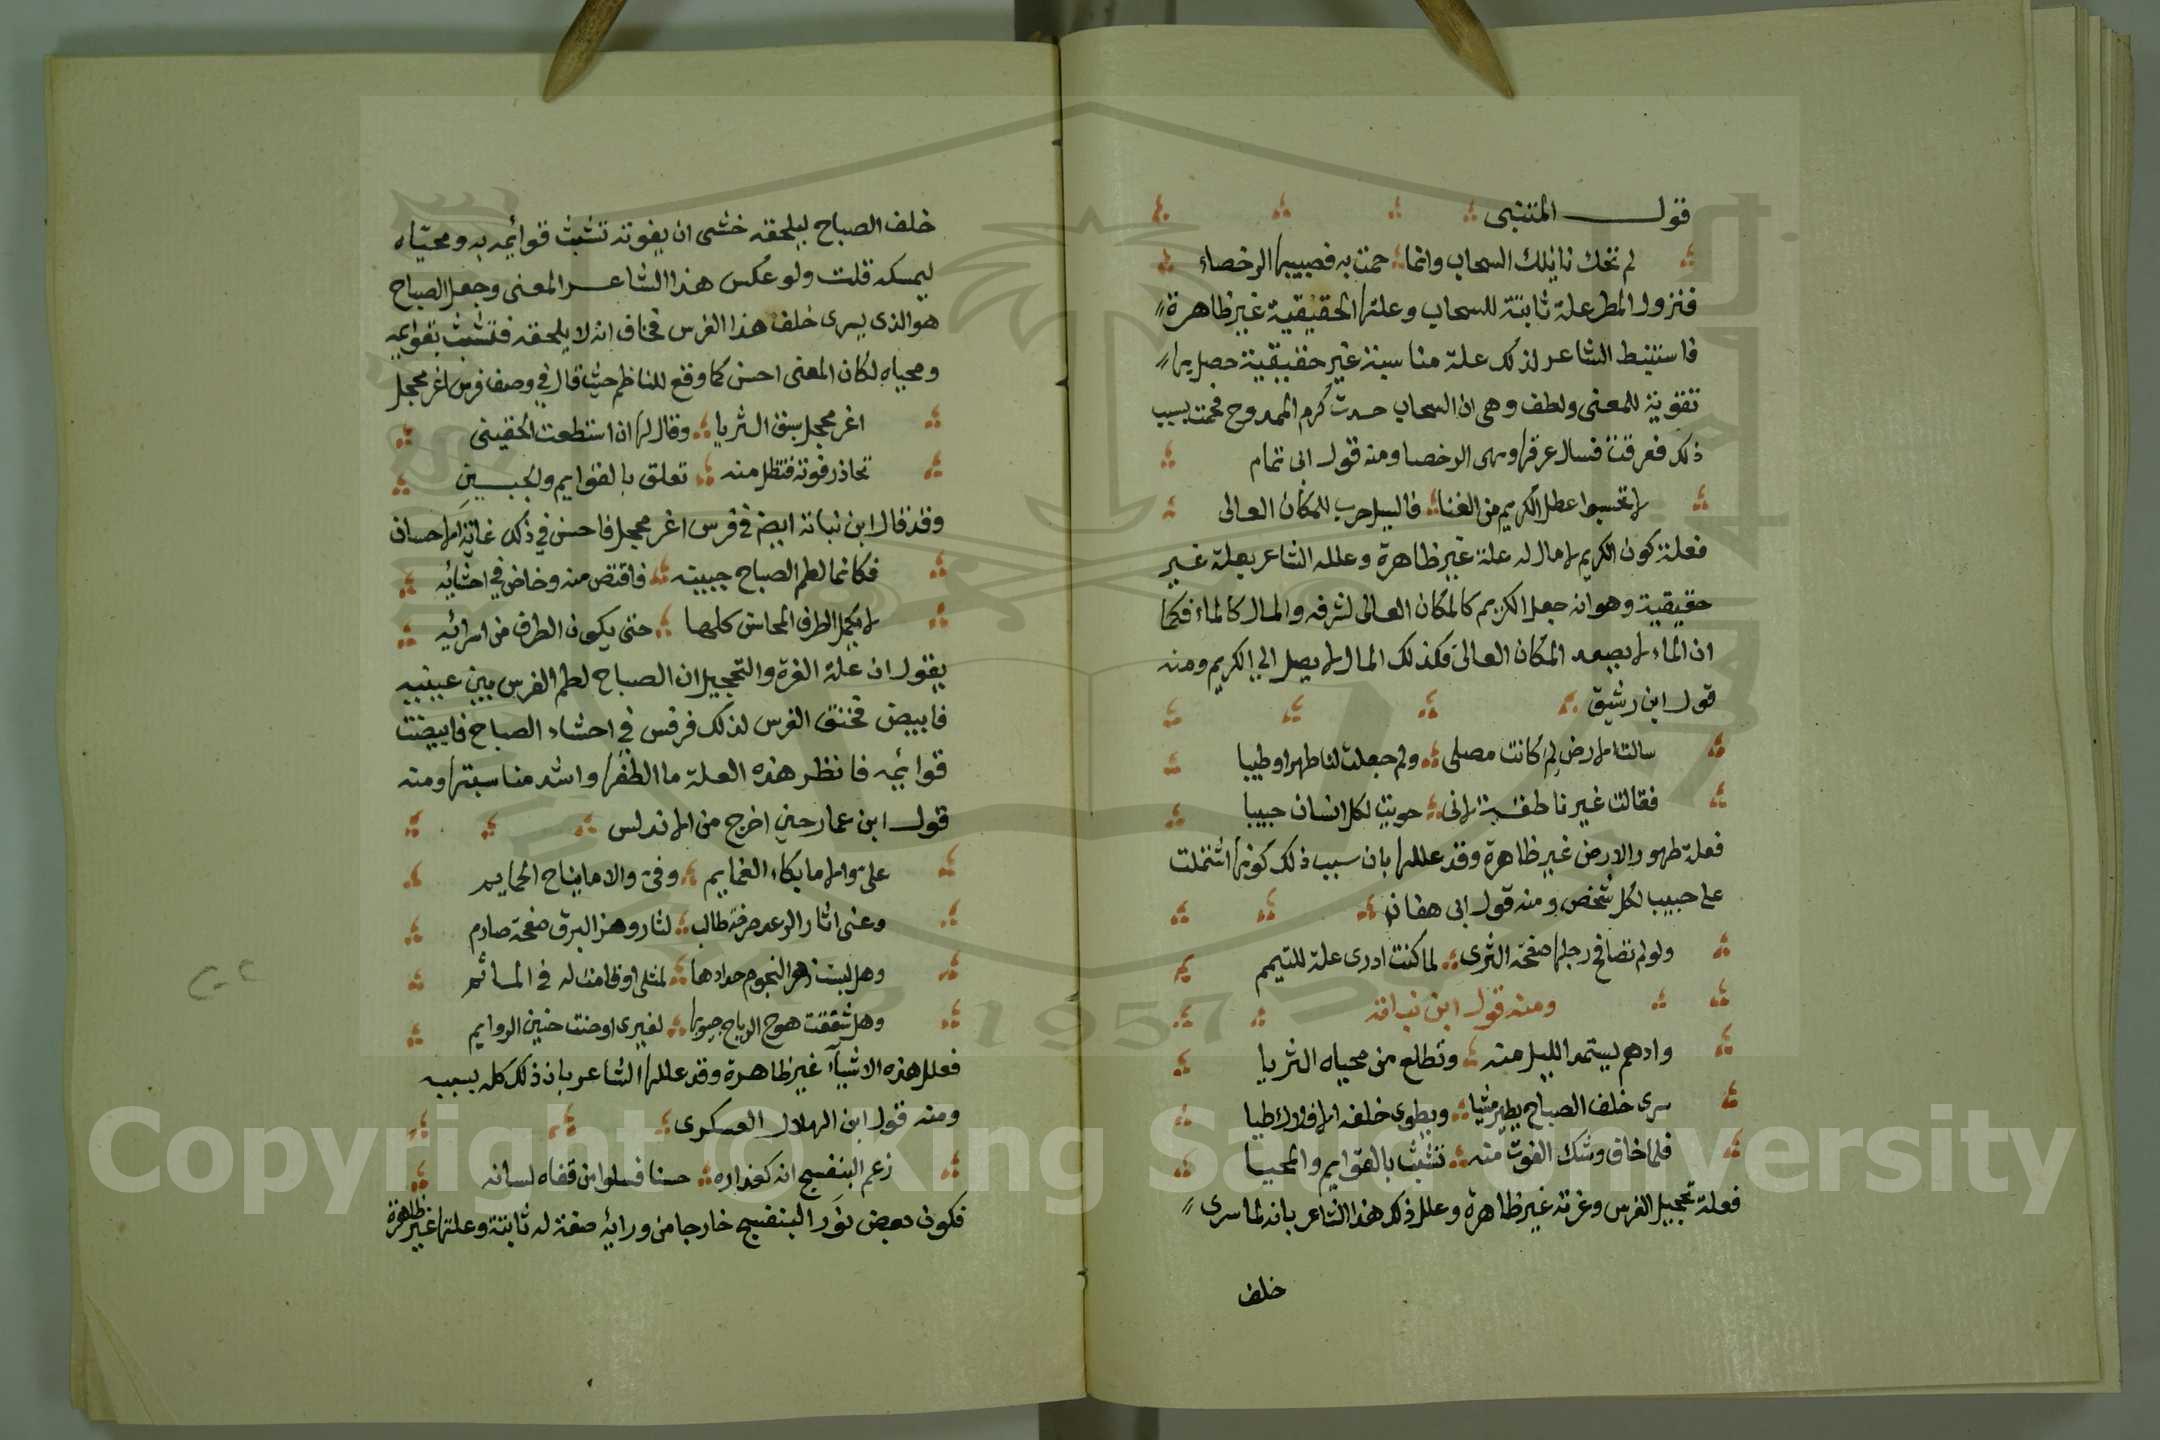 قول المتنبى
لم تحك نايلك السحاب وانما حمت به فصبيبها الرحضاء
فنزول المطر علة ثابتة للسحاب وعلتها الحقيقية غير ظاهرة
فاستنبط الشاعر لذلك علة مناسبة غير حقيقية حصل بها
تقوية للمعنى ولطف وهى ان السحاب حسدت كرم الممدوح فحمت بسبب
ذلك فعرقت فسال عرقها وسمى الرحضا ومنه قول ابى تمام
لا تحسبوا عطل الكريم من الغنا فالسيل حرب للمكان العالى
فعلة كون الكريم لا مال له علة غير ظاهرة وعلله الشاعر بعلة غير
حقيقية وهو انه جعل الكريم كالمكان العالى لشرفه والمال كالماء فكما
ان الماء لا يصعد المكان العالى فكذلك المال لا يصل الى الكريم ومنه
قول ابن رشيق
سالت الارض لم كانت مصلى ولم جعلت لنا طهرا وطيبا
فقالت غير ناطقة لانى حويت لكل انسان حبيبا
فعلة طهور الارض غير ظاهرة وقد عللها بان سبب ذلك كونها اشتملت
على حبيب لكل شخص ومنه قول ابى هفان
ولو لم تصافح رجلها صفحة الثرى لما كنت ادرى علة للتيمم
ومنه قول ابن نباتة
وادهم يستمد الليل منه وتطلع من محياه الثريا
سرى خلف الصباح يطير مشيا ويطوى خلفه الافلاك طيا
فلما خاف وشك الفوت منه تشبث بالقوايم والمحيا
فعلة تحجيل الفرس وغرته غير ظاهرة وعلل ذلك هذا الشاعر بانه لما سرى
خلف
خلف الصباح ليلحقه خشى ان يفوته تشبث قوائمه به ومحياه
ليمسكه قلت ولو عكس هذا الشاعر المعنى وجعل الصباح
هو الذى يسرى خلف هذا الفرس فخاف انه لا يلحقه فتشبث بقوايمه
ومحياه لكان المعنى احسن كما وقع للناظم حيث قال فى وصف فرس اغر محجل
اغر محجل سبق الثريا وقال لها ان استطعت الحقينى
تحاذر فوته فتظل منه تعلق بالقوايم والجبين
وقد قال ابن نباتة ايض فى فرس اغر محجل فاحسن فى ذلك غاية الاحسان
فكانما لطم الصباح جبينه فاقتص منه وخاض فى احشائه
لا تكمل الطرف المحاسن كلها حتى يكون الطرف من اسرائه
يقول ان علة الغرة والتحجيل ان الصباح لطم الفرس بين عينيه
فابيض فحنق الفرس لذلك فرفس فى احشاء الصباح فابيضت
قوائمه فانظر هذه العلة ما الطفها واشد مناسبتها ومنه
قول ابن عمار حين اخرج من الاندلس
على والا ما بكاء الغمايم وفى والا ما نياح الحمايم
وعنى اثار الرعد صرخة طالب لثار وهز البرق صفحة صارم
وهل لبست زهر النجوم حدادها لمثلى او قامت له فى المـاتم
وهل شققت هوج الرياح جيوبها لغيرى او حنت حنين الروايم
فعلل هذه الاشياء غير ظاهرة وقد عللها الشاعر بان ذلك كله بسببه
ومنه قول ابن الهلال العسكرى
زعم البنفسج انه كعذاره حسنا فسلوا من قفاه لسانه
فكون بعض نور البنفسج خارجا من ورائه صفة له ثابتة وعلتها غير ظاهرة
Copyright © King Saud University
1957